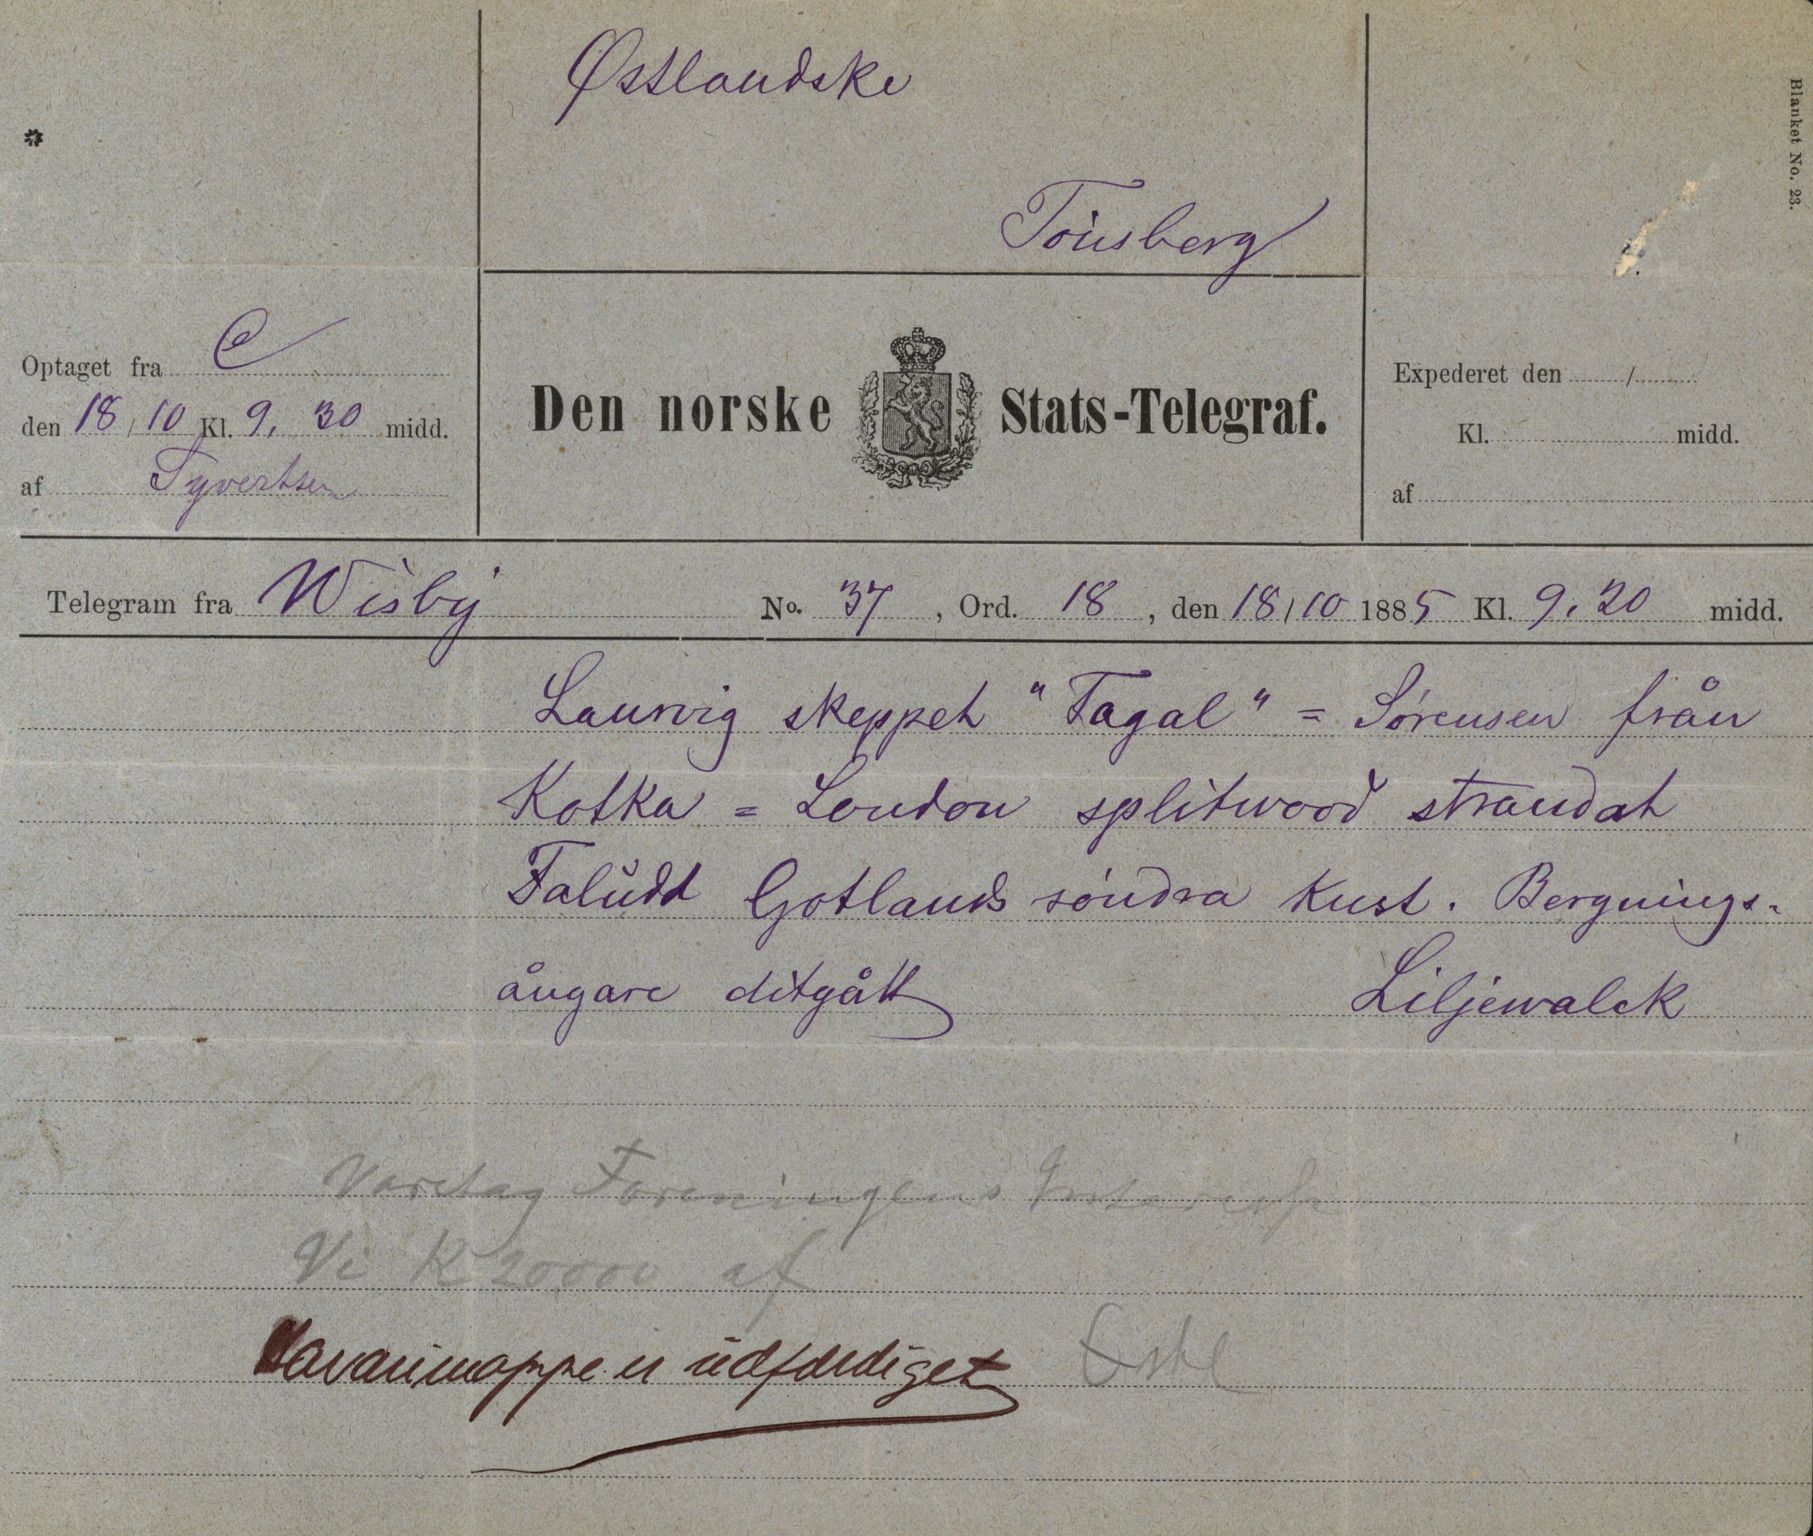 Østlandske
Tönsberg
Blanket No. 23.
Optaget fra C
den 18/10 Kl. 9.30 midd.
af Syvertsen
Den norske Stats-Telegraf.
Expederet den /
Kl. midd.
af
Telegram fra Wisby No. 37, Ord. 18, den 18/10 1885 Kl. 9.20 midd.
Laurvig skeppet "Fagal" = Sørensen från
Kotka = London splitwood strandat
Faludd Gotlands söndra Kust. Bergnings-
ångare ditgått Liljewalck
Varetag Foreningens Interesse
Vi K 20000 af
Havarimappe er udfærdiget